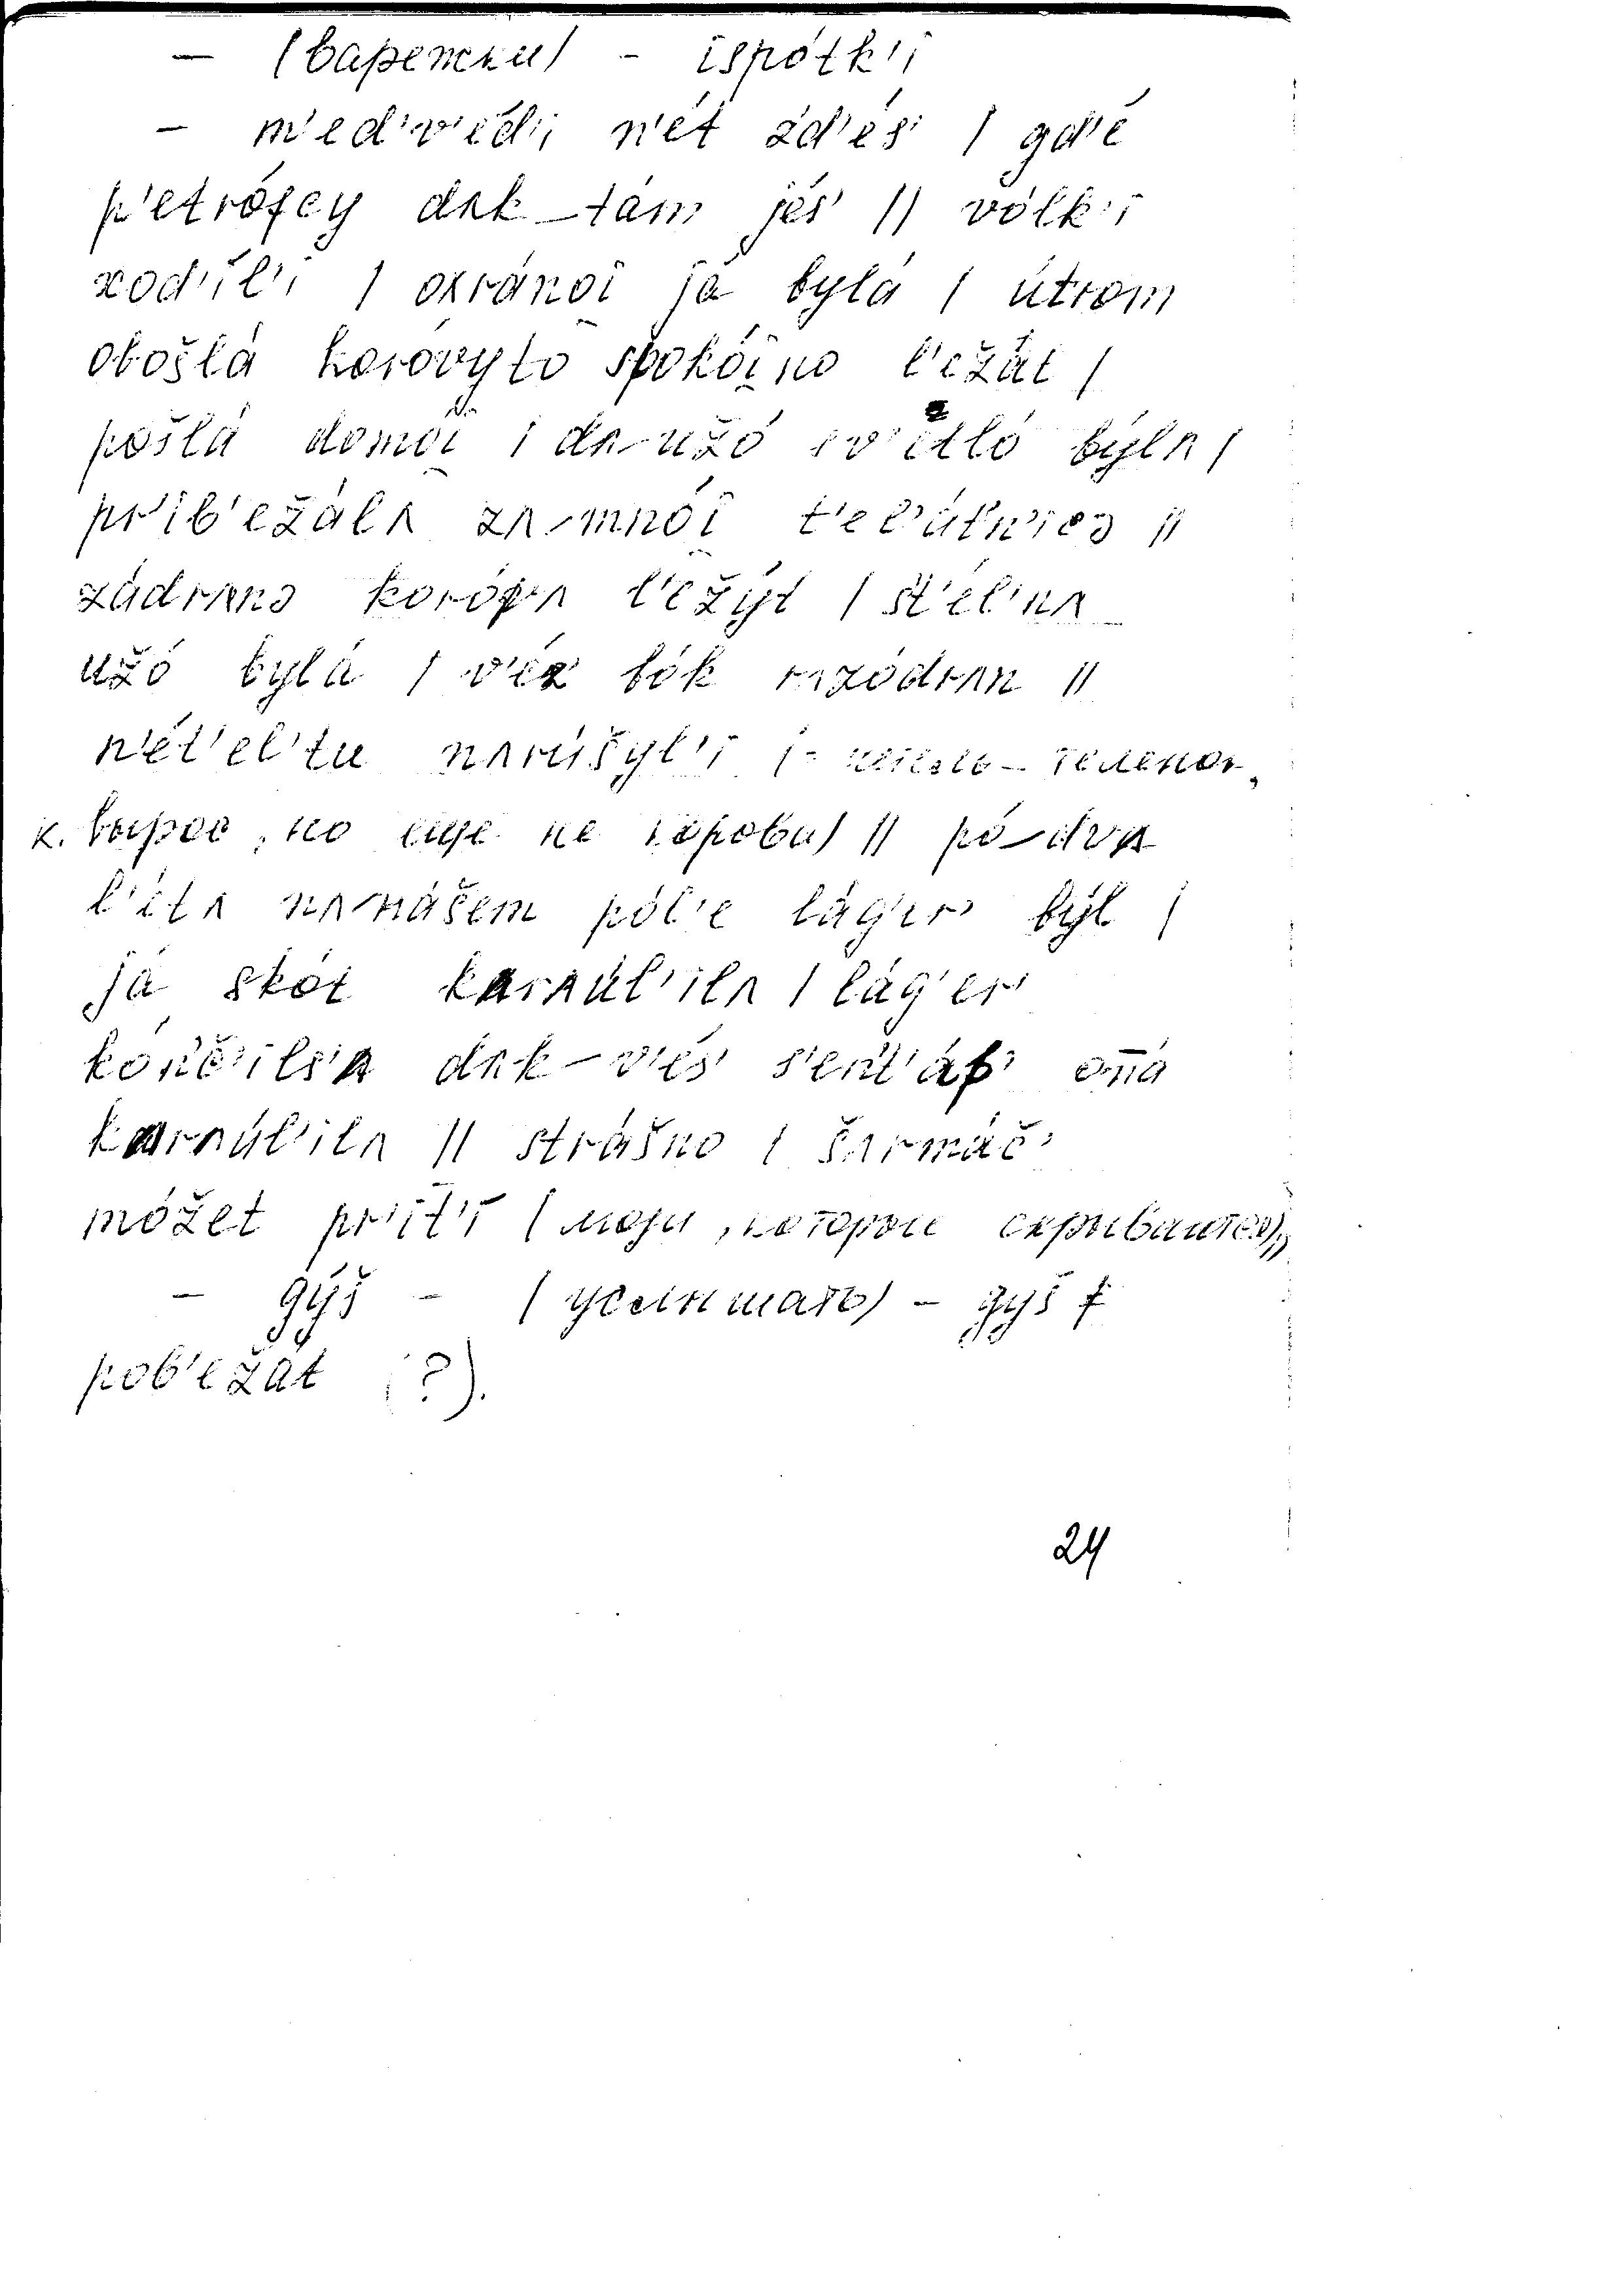 — (варежки) - ispótk'i
— m'edv'éd'i n'ét zd'és' / gd'é
p'etrófcy dʌk—tám jés' // vólk'i
xod'íl'i / oxránoi̯ já bylá / útrom
obošlá koróvyto spokói̯no l'ežát /
pošlá domói̯ i dʌ‿užó sv'etló býlʌ /
pr'ib'ežálʌ zʌ‿mnói̯ t'el'átn'icə //
zádrʌnə koróvʌ l'ežýt / s't'él'nʌ
užó bylá / v'és bók rʌzódrʌn //
n'ét'el'tu nʌrúšyl'i (- нетель - теленок,
к. вырос, но еще не корова) // pó‿dvʌ
l'étʌ nʌ‿nášem pól'e láger' býl /
já skót kʌrʌúl'ilʌ / lág'er'
kón'č'ils'ʌ dʌk—v'és' s'ent'ábr' oná
kʌrʌúl'ilʌ // strášno / šʌrmáč'
móžet pr'it'í (люди, которые скрываются) //
— gýš - (услышать) - gýš
pob'ežát (?).
24